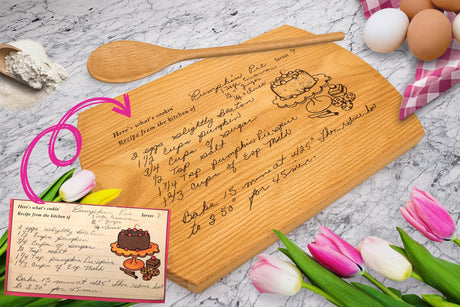 Here's what's cookin' Pumpkin Pie Serves 9
Recipe from the kitchen of
2 eggs slightly beaten
1 1/2 Cups Pumpkin
3/4 Cups of Sugar
1/2 Tsp Salt
1 3/4 Tsp Pumpkin Pie spice
1 2/3 Cups of Evap. Milk
Bake 15 min at 425° then reduce heat
to 350° for 45 min.
Here's what's cookin' Pumpkin Pie Serves 9
Recipe from the kitchen of
2 eggs slightly beaten
1 1/2 Cups Pumpkin
3/4 Cups of Sugar
1/2 Tsp Salt
1 3/4 Tsp Pumpkin Pie spice
1 2/3 Cups of Evap. Milk
Bake 15 min at 425° then reduce heat
to 350° for 45 min.